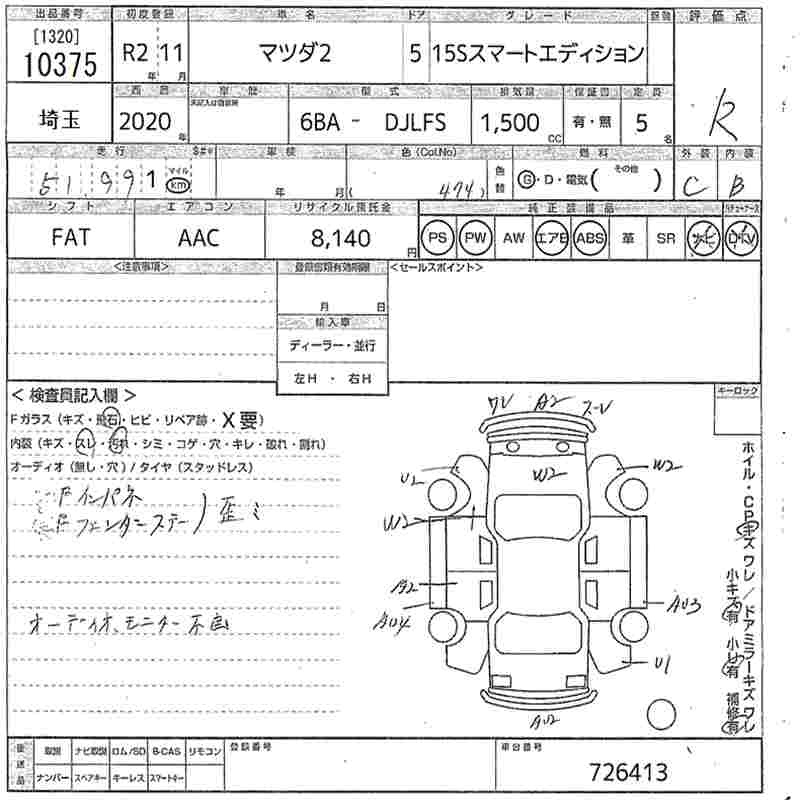 出品番号 初度登録 車名 ドア グレード 評価点
[1320]
10375 R2年 11月 マツダ2 5 15Sスマートエディション R
西暦 車歴 型式 排気量 保証書 定員
未記入は自家用
埼玉 2020年 6BA - DJLFS 1,500CC 有・無 5名
走行 車検 色(Col.No) 燃料 外装 内装
51,991 マイル km 年 月( 474) 色替 G・D・電気( その他 ) C B
シフト エアコン リサイクル預託金 純正装備品
FAT AAC 8,140円 PS PW AW エアB ABS 革 SR ナビ D・TV
<注意事項> 登録書類有効期限 <セールスポイント>
月 日
輸入車
ディーラー・並行
左H ・ 右H
< 検査員記入欄 > キーロック
Fガラス(キズ・飛石・ヒビ・リペア跡・X要)
内装(キズ・スレ・汚れ・シミ・コゲ・穴・キレ・破れ・割れ)
オーディオ(無し・穴)/タイヤ(スタッドレス)
Fインパネ
Fフェンダーステー)歪ミ
オーディオ、モニター不良
ワレ A2 スレ
U2 W2 W2
W2
A2 AU3
AU4
U1
AU2
ホイル・CPキズワレ/ドアミラーキズワレ
小キズ有 小凹有 補修有
発送品 取説 ナビ取説 ロム/SD B-CAS リモコン 登録番号 車台番号
ナンバー スペアキー キーレス スマートキー 726413